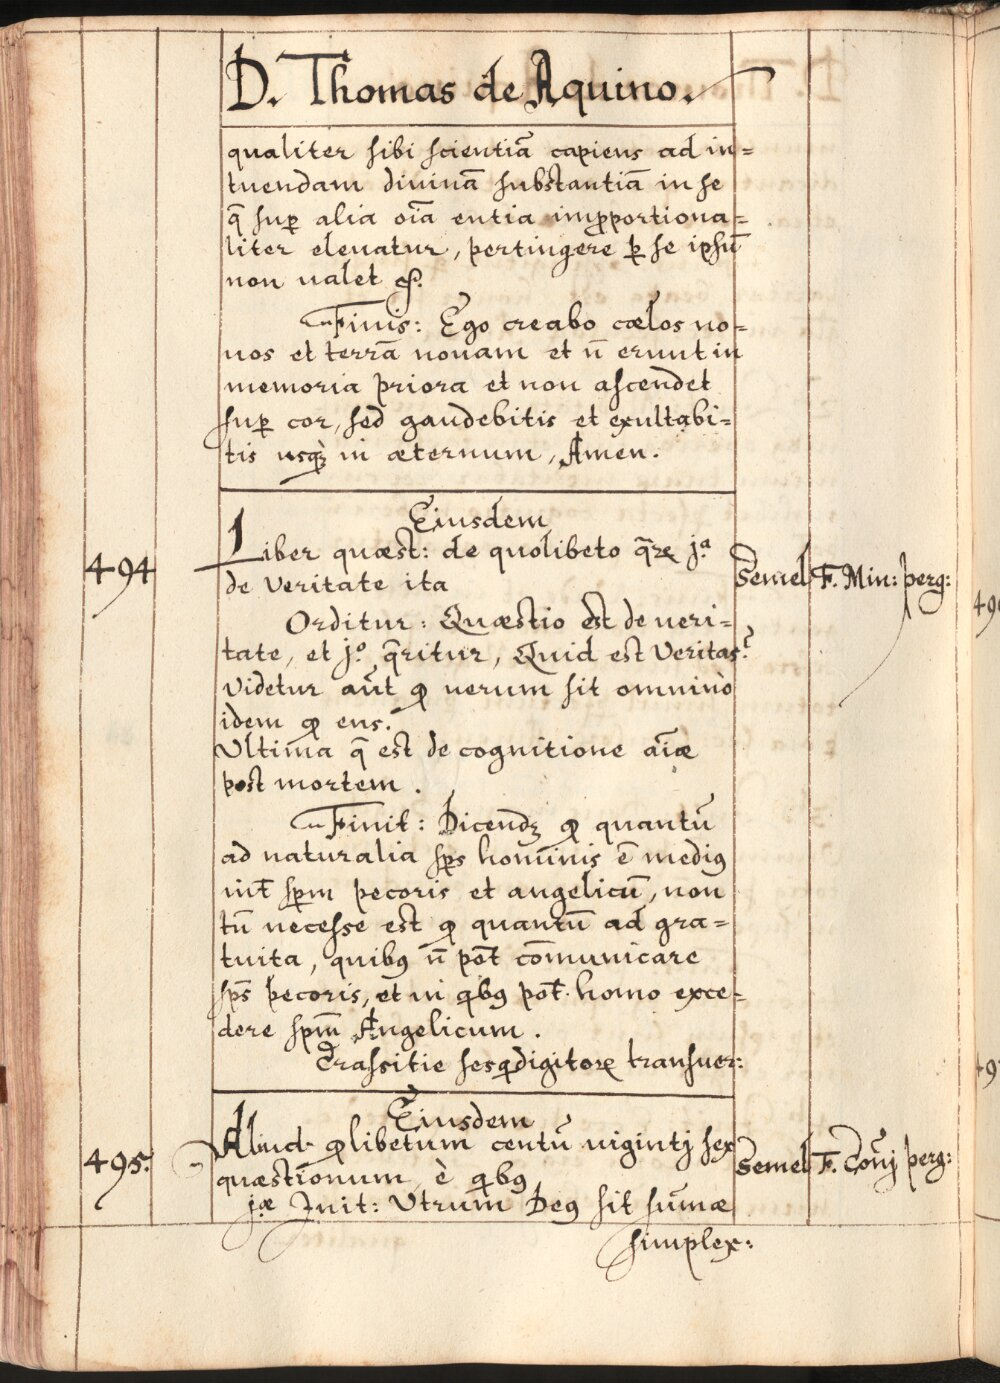 D. Thomas de Aquino.
qualiter sibi scientiã capiens ad in=
tuendam diuinã substantiã in se
q̃ suꝑ alia oĩa entia imꝓportiona=
liter eleuatur, pertingere ꝑ se ipsũ
non ualet &.
Finis: Ego creabo cælos no=
uos et terrã nouam et ñ erunt in
memoria priora et non ascendet
suꝑ cor, sed gaudebitis et exultabi=
tis usqꝫ in æternum, Amen.
Eiusdem
494 Liber quæst: de quolibeto q̃rꝝ j.ª Semel F. Min: perg:
de Veritate ita
Orditur: Quæstio est de ueri=
tate, et j.º q̃ritur, Quid est Veritas?
Videtur aũt ꝙ uerum sit omnino
idem ꝙ ens.
Ultima q̃ est de cognitione aĩæ
post mortem.
Finit: Dicendꝫ ꝙ quantũ
ad naturalia sp̃s hominis ẽ mediꝰ
int̃ sp̃m pecoris et angelicũ, non
tñ necesse est ꝙ quantũ ad gra=
tuita, quibꝰ ñ põt cõmunicare
sp̃s pecoris, et in qibꝰ põt homo exce=
dere sp̃m Angelicum.
Crassitie sesqdigitorꝝ transuer:
Eiusdem
495. Aliud qolibetum centũ uigintj sex Semel F. Conuj perg:
quæstionum, è qibꝰ
jæ Init: Vtrum Deꝰ sit sum̃æ
simplex: